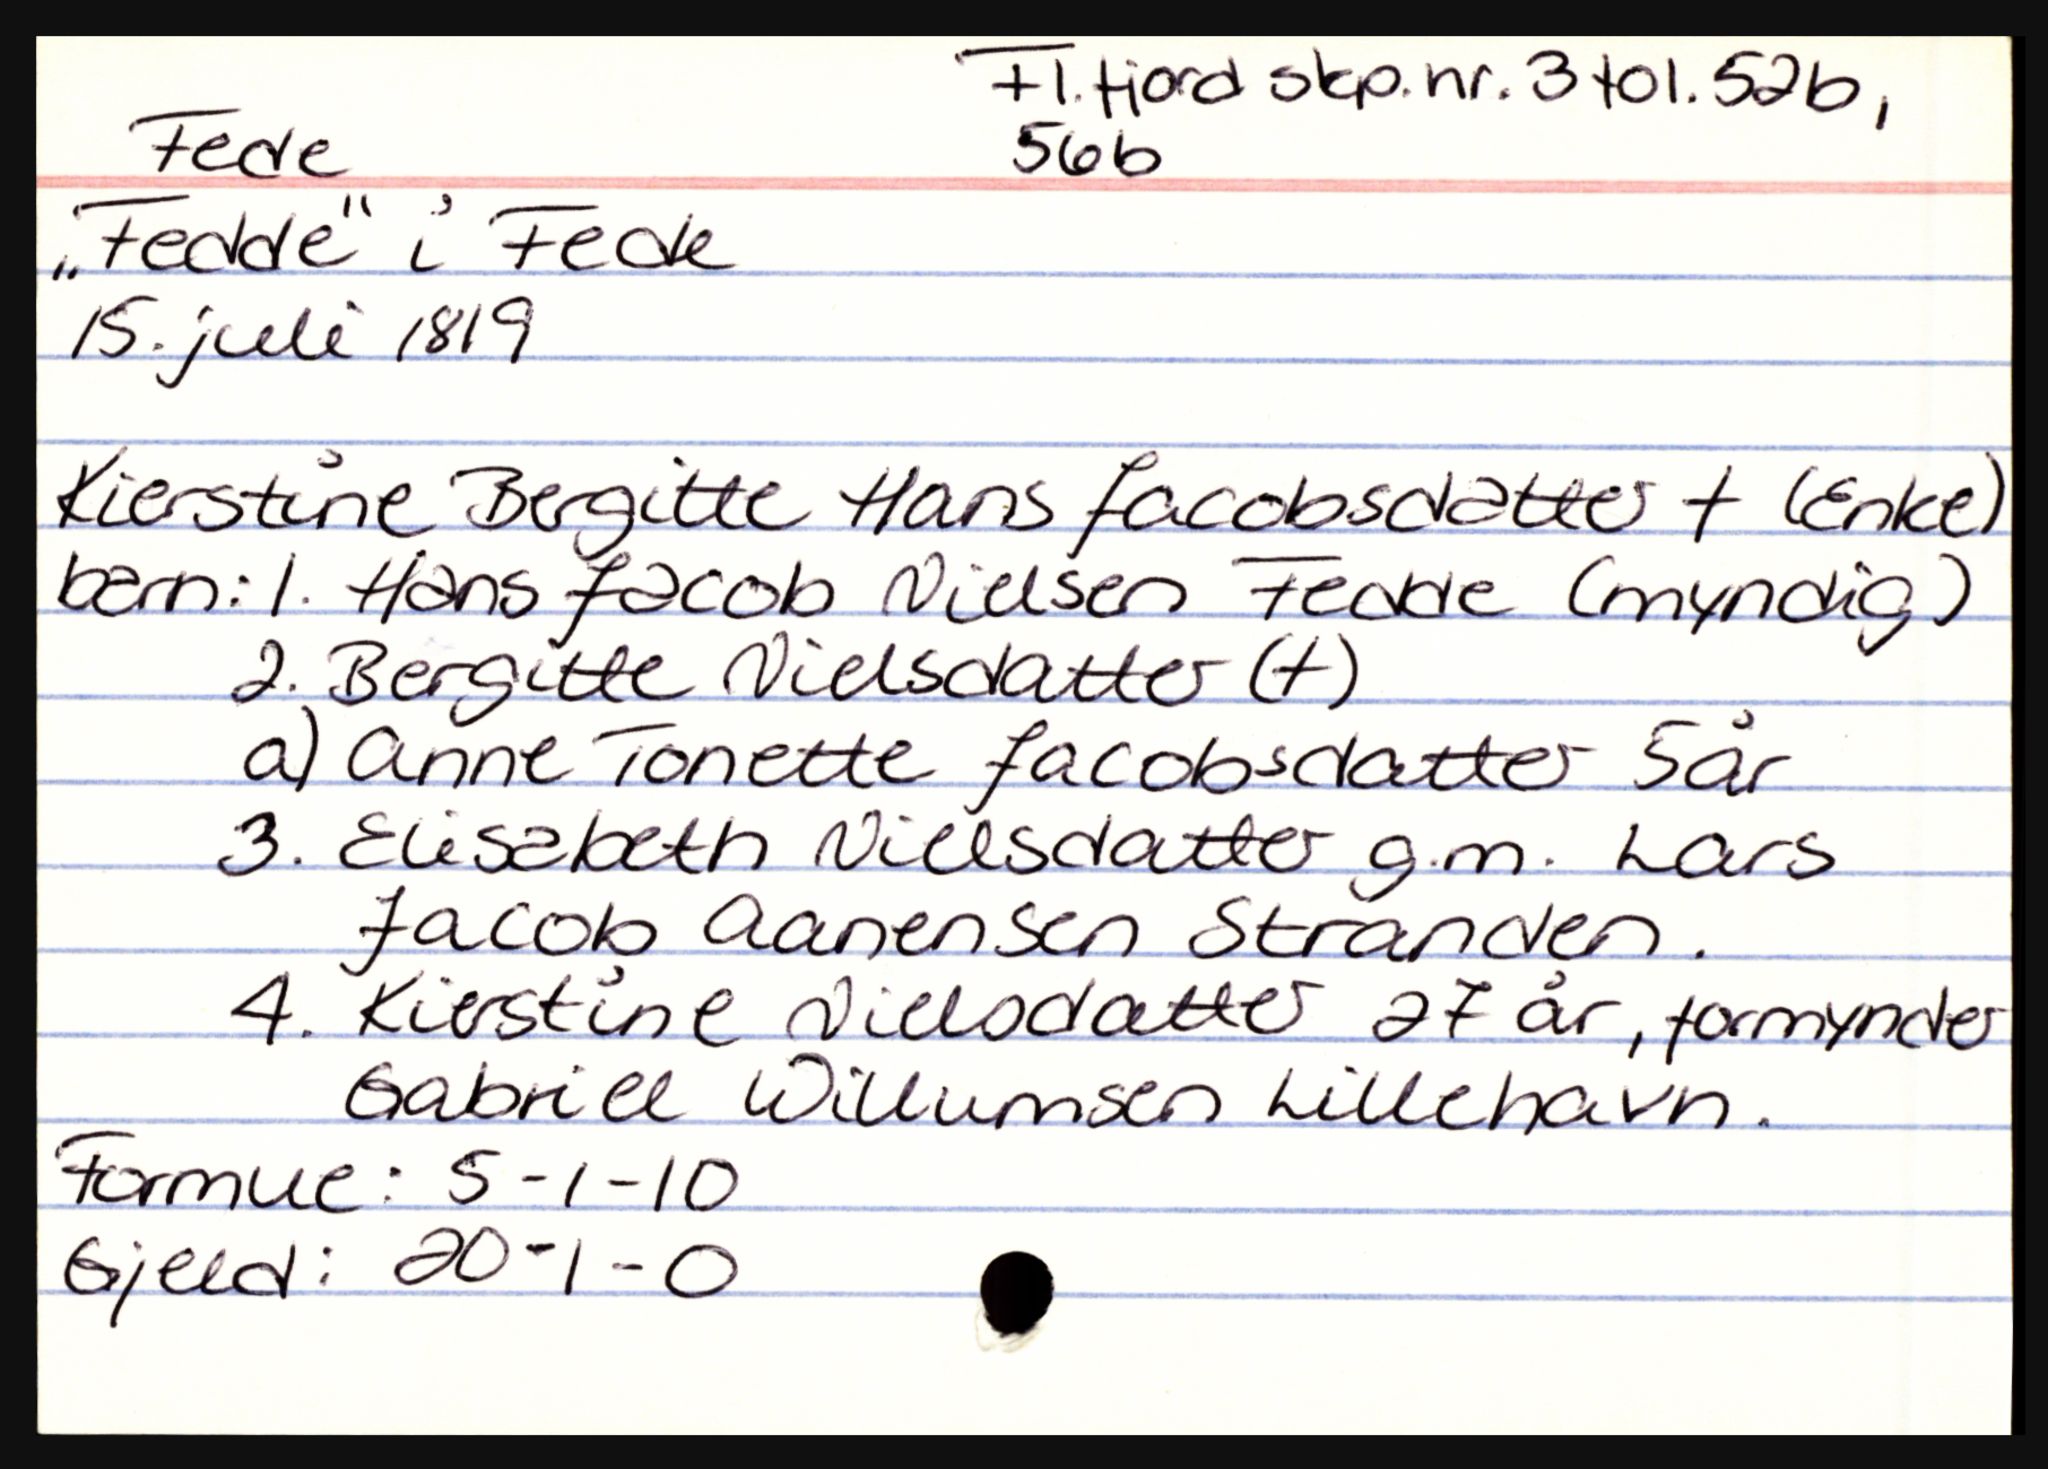 Fl.fjord skp.nr. 3 fol. 52b,
Fede 56b
„Fedde" i Fede
15. juli 1819
Kierstine Bergitte Hans Jacobsdatter † (Enke)
barn: 1. Hans Jacob Nielsen Fedde (myndig)
2. Bergitte Nielsdatter (†)
a) Anne Tonette Jacobsdatter 5 år
3. Elisabeth Nielsdatter g.m. Lars
Jacob Aanensen Stranden.
4. Kierstine Nielsdatter 27 år, formynder
Gabriel Willumsen Lillehavn.
Formue: 5-1-10
Gjeld: 20-1-0